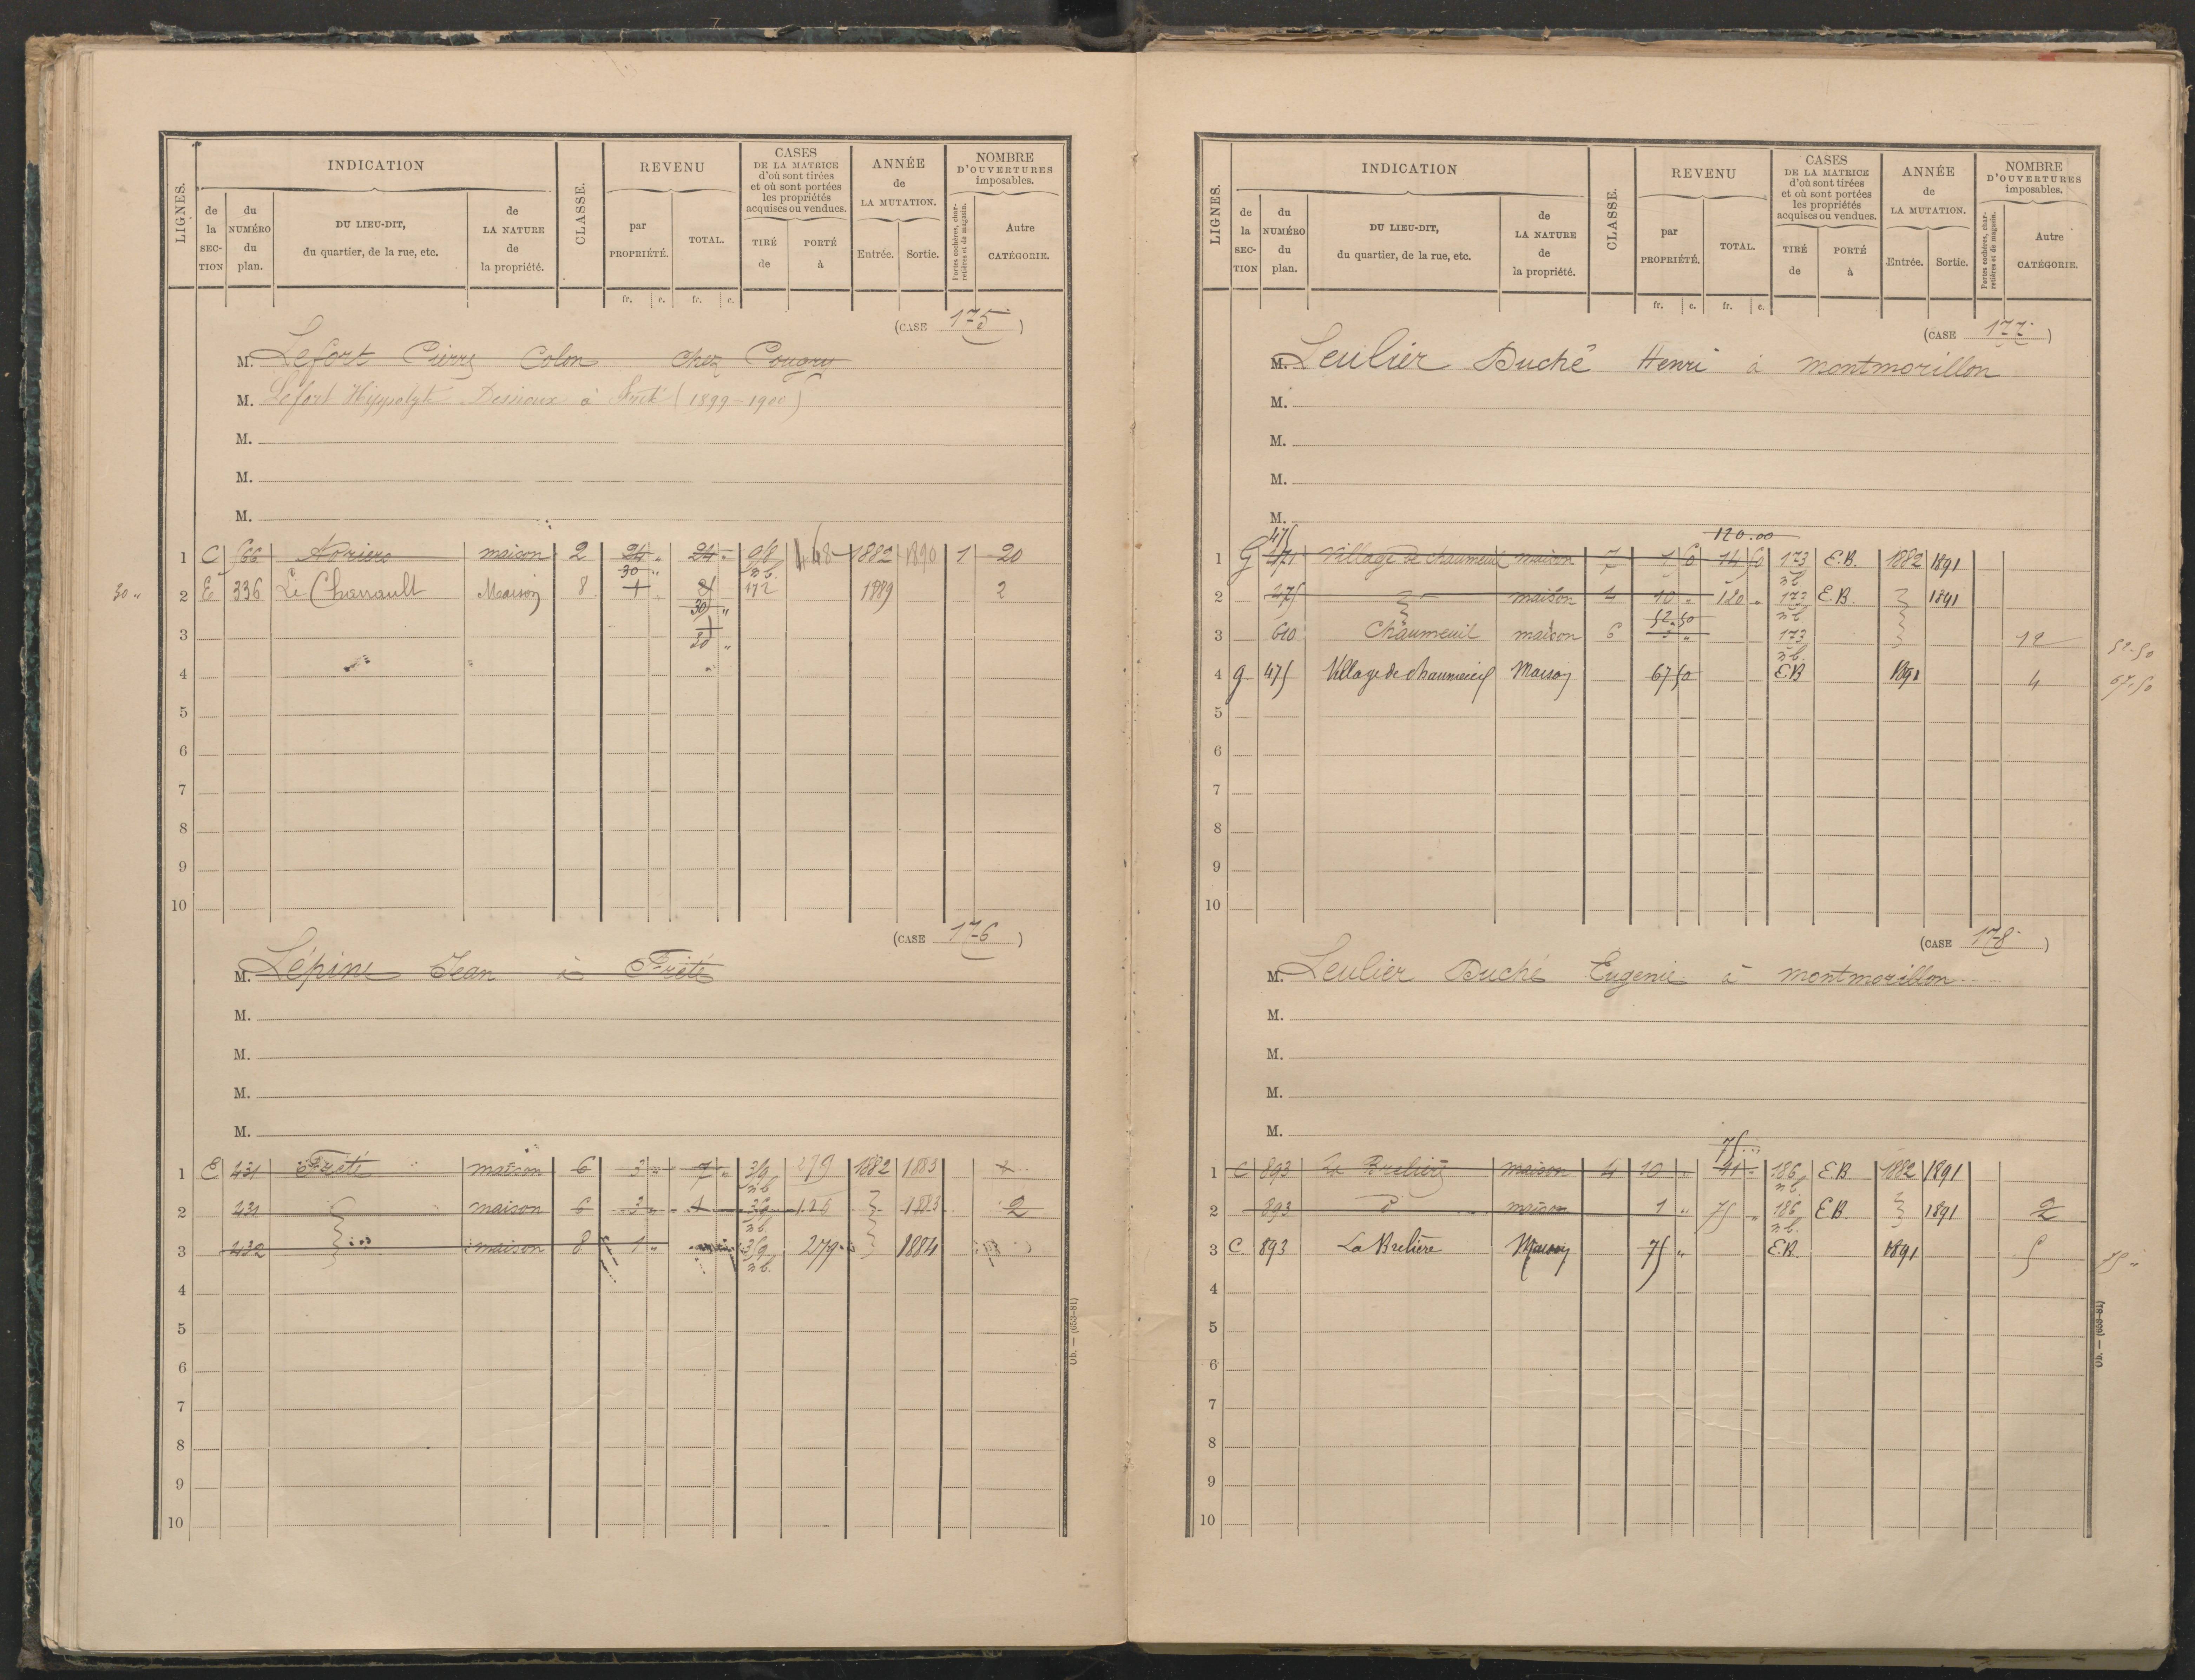 LIGNES. INDICATION CLASSE. REVENU CASES DE LA MATRICE d'où sont tirées et où sont portées les propriétés acquises ou vendues. ANNÉE de LA MUTATION. NOMBRE D'OUVERTURES imposables.
de la SECTION du NUMÉRO du plan. DU LIEU-DIT, du quartier, de la rue, etc. de LA NATURE de la propriété. par PROPRIÉTÉ. TOTAL. TIRÉ de PORTÉ à Entrée. Sortie. Portes cochères, charretières et de magasin. Autre CATÉGORIE.
fr. c. fr. c.
(CASE 175)
M. Lefort Pierre Colon chez Cougny
M. Lefort Hippolyte Dessioux à Frété (1899-1900)
M.
M.
M.
1 C 566 maison 2 24 " 24 " 98 n.b. 468 1882 1890 1 20
30 " 2 E 336 Le Charrault Maison 8 30 " 1 172 1889 2
3 20 "
4
5
6
7
8
9
10
(CASE 176)
M. Lépine Jean à Frété
M.
M.
M.
M.
1 E 431 Frété maison 6 3 " 7 " 3/9 n.b. 279 1882 1883
2 431 maison 6 3 " 1883 2
3 432 maison 8 1 " 3/9 n.b. 279 1884
4
5
6
7
8
9
10
Ob. — (653-81)
LIGNES. INDICATION CLASSE. REVENU CASES DE LA MATRICE d'où sont tirées et où sont portées les propriétés acquises ou vendues. ANNÉE de LA MUTATION. NOMBRE D'OUVERTURES imposables.
de la SECTION du NUMÉRO du plan. DU LIEU-DIT, du quartier, de la rue, etc. de LA NATURE de la propriété. par PROPRIÉTÉ. TOTAL. TIRÉ de PORTÉ à Entrée. Sortie. Portes cochères, charretières et de magasin. Autre CATÉGORIE.
fr. c. fr. c.
(CASE 177)
M. Leulier Duché Henri à Montmorillon
M.
M.
M.
M.
475 120.00
1 G 471 Village de chaumeuil maison 7 1 50 14 50 173 n.b. E.B. 1882 1891
2 475 maison 4 10 " 120 " 173 n.b. E.B. 1891
52.50
3 610 Chaumeuil maison 6 173 n.b. 12 52-50
4 g 475 Village de chaumeuil Maison 67 50 E.B 1891 4 67.50
5
6
7
8
9
10
(CASE 178)
M. Leulier Duché Eugenie à Montmorillon
M.
M.
M.
M.
75
1 C 893 La Brelière maison 4 10 " 41 " 186 n.b. E.B. 1882 1891
2 893 d° maison 1 " 75 " 186 n.b. E.B. 1891 2
3 C 893 La Brelière Maison 75 " E.B. 1891 5 75 "
4
5
6
7
8
9
10
Ob. — (653-81)